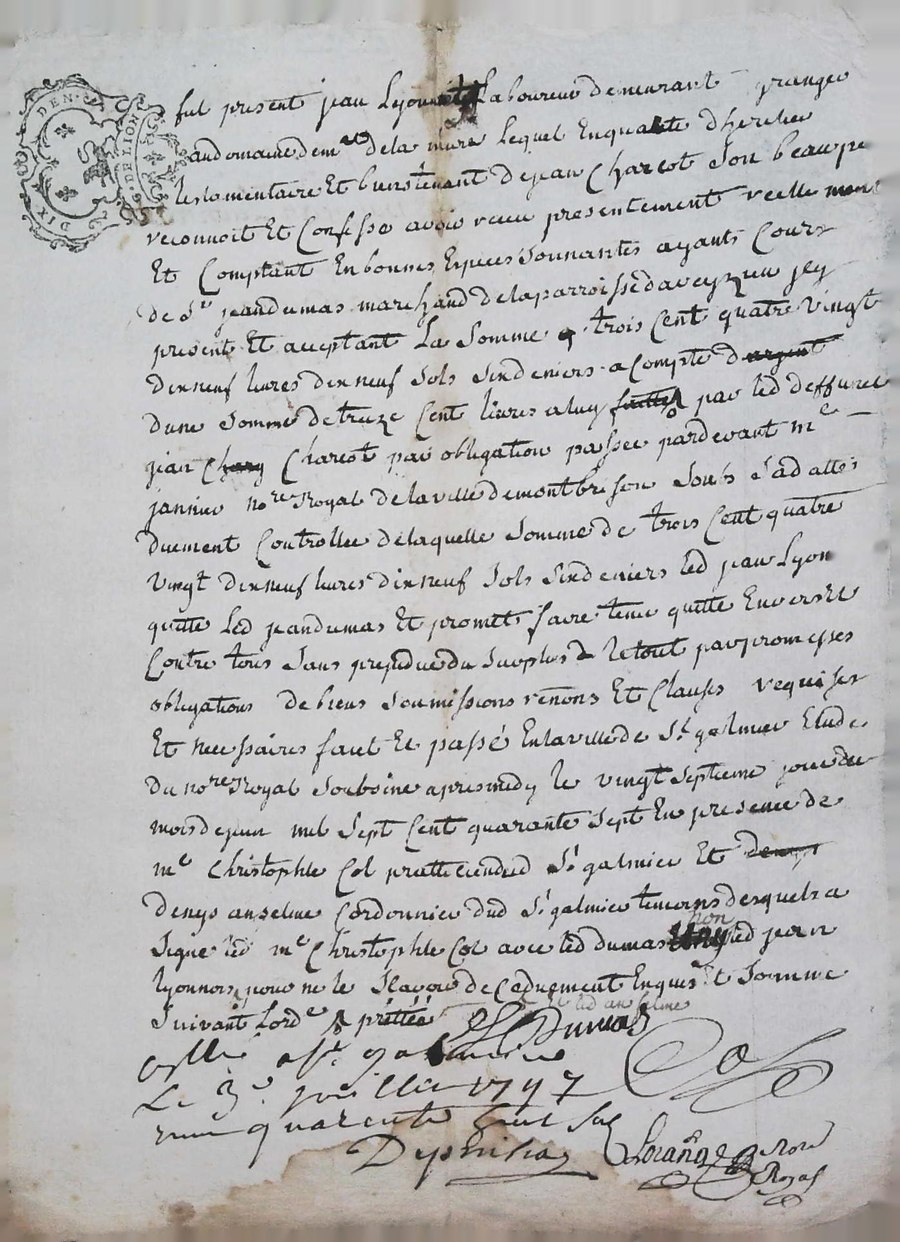 DIX DEN.
G. DE LION
fut present jean Lyonnois Laboureur demeurant granger
au domaine de mr de la mure Lequel En qualité d'heritier
testamentaire Et bienstenant de jean Charcot Son beaupe
reconnoit Et Confesse avoir receu presentement reellement
Et Comptant En bonnes Especes Sonnantes ayants Cours
de Sr jean dumas marchand de la parroisse daveyzieu jcy
present Et acceptant La Somme de trois Cent quatre vingt
dixneuf livres dixneuf Sols Six deniers a compte d'argent
dune Somme de treize Cent livres a luy par led deffunt
jean Chary Charcot par obligation passée pardevant me
jannier nore Royal de la ville de montbrison Sous Sa datte
duement Controllée de laquelle Somme de trois Cent quatre
vingt dixneuf livres dixneuf Sols Six deniers led jean Lyon
quitte Led jean dumas Et promet faire tenir quitte Envers Et
Contre tous Sans prejudice du Surplus Le tout par promesses
obligations de biens Soumissions renons Et Clauses requises
Et necessaires fait Et passé En la ville de St galmier Etude
du nore Royal Soubsigné apres midy le vingt Septieme jour du
mois de juin mil Sept Cent quarante Sept En presence de
me Christophle Col pratticien dud St galmier Et denys
denys anselme Cordonnier dud St galmier temoins desquels a
Signé led me Christophle Col avec led dumas non led jean
lyonnois pour ne le Scavoir de Ce duement Enquis Et Sommé
Et led anselme
Suivant Lorde
Dumas
Col
a St galmier
Le 3e juillet 1747
quarente huit Sol
nore
Royal